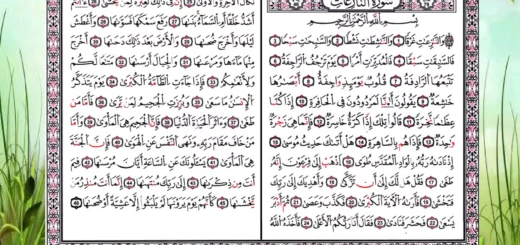 سُورَةُ النَّازِعَاتِ
بِسْمِ اللَّهِ الرَّحْمَٰنِ الرَّحِيمِ
وَالنَّازِعَاتِ غَرْقًا ١ وَالنَّاشِطَاتِ نَشْطًا ٢ وَالسَّابِحَاتِ سَبْحًا ٣
فَالسَّابِقَاتِ سَبْقًا ٤ فَالْمُدَبِّرَاتِ أَمْرًا ٥ يَوْمَ تَرْجُفُ الرَّاجِفَةُ ٦
تَتْبَعُهَا الرَّادِفَةُ ٧ قُلُوبٌ يَوْمَئِذٍ وَاجِفَةٌ ٨ أَبْصَارُهَا
خَاشِعَةٌ ٩ يَقُولُونَ أَءِنَّا لَمَرْدُودُونَ فِي الْحَافِرَةِ ١٠ أَءِذَا كُنَّا
عِظَامًا نَّخِرَةً ١١ قَالُوا تِلْكَ إِذًا كَرَّةٌ خَاسِرَةٌ ١٢ فَإِنَّمَا هِيَ زَجْرَةٌ
وَاحِدَةٌ ١٣ فَإِذَا هُم بِالسَّاهِرَةِ ١٤ هَلْ أَتَاكَ حَدِيثُ مُوسَىٰ ١٥
إِذْ نَادَاهُ رَبُّهُ بِالْوَادِ الْمُقَدَّسِ طُوًى ١٦ اذْهَبْ إِلَىٰ فِرْعَوْنَ إِنَّهُ
طَغَىٰ ١٧ فَقُلْ هَل لَّكَ إِلَىٰ أَن تَزَكَّىٰ ١٨ وَأَهْدِيَكَ إِلَىٰ رَبِّكَ
فَتَخْشَىٰ ١٩ فَأَرَاهُ الْآيَةَ الْكُبْرَىٰ ٢٠ فَكَذَّبَ وَعَصَىٰ ٢١ ثُمَّ أَدْبَرَ
يَسْعَىٰ ٢٢ فَحَشَرَ فَنَادَىٰ ٢٣ فَقَالَ أَنَا رَبُّكُمُ الْأَعْلَىٰ ٢٤ فَأَخَذَهُ اللَّهُ
نَكَالَ الْآخِرَةِ وَالْأُولَىٰ ٢٥ إِنَّ فِي ذَٰلِكَ لَعِبْرَةً لِّمَن يَخْشَىٰ ٢٦ ءَأَنتُمْ
أَشَدُّ خَلْقًا أَمِ السَّمَاءُ بَنَاهَا ٢٧ رَفَعَ سَمْكَهَا فَسَوَّاهَا ٢٨ وَأَغْطَشَ
لَيْلَهَا وَأَخْرَجَ ضُحَاهَا ٢٩ وَالْأَرْضَ بَعْدَ ذَٰلِكَ دَحَاهَا ٣٠ أَخْرَجَ
مِنْهَا مَاءَهَا وَمَرْعَاهَا ٣١ وَالْجِبَالَ أَرْسَاهَا ٣٢ مَتَاعًا لَّكُمْ
وَلِأَنْعَامِكُمْ ٣٣ فَإِذَا جَاءَتِ الطَّامَّةُ الْكُبْرَىٰ ٣٤ يَوْمَ يَتَذَكَّرُ
الْإِنسَانُ مَا سَعَىٰ ٣٥ وَبُرِّزَتِ الْجَحِيمُ لِمَن يَرَىٰ ٣٦ فَأَمَّا مَن
طَغَىٰ ٣٧ وَآثَرَ الْحَيَاةَ الدُّنْيَا ٣٨ فَإِنَّ الْجَحِيمَ هِيَ الْمَأْوَىٰ ٣٩ وَأَمَّا
مَنْ خَافَ مَقَامَ رَبِّهِ وَنَهَى النَّفْسَ عَنِ الْهَوَىٰ ٤٠ فَإِنَّ الْجَنَّةَ
هِيَ الْمَأْوَىٰ ٤١ يَسْأَلُونَكَ عَنِ السَّاعَةِ أَيَّانَ مُرْسَاهَا ٤٢ فِيمَ
أَنتَ مِن ذِكْرَاهَا ٤٣ إِلَىٰ رَبِّكَ مُنتَهَاهَا ٤٤ إِنَّمَا أَنتَ مُنذِرُ مَن
يَخْشَاهَا ٤٥ كَأَنَّهُمْ يَوْمَ يَرَوْنَهَا لَمْ يَلْبَثُوا إِلَّا عَشِيَّةً أَوْ ضُحَاهَا ٤٦